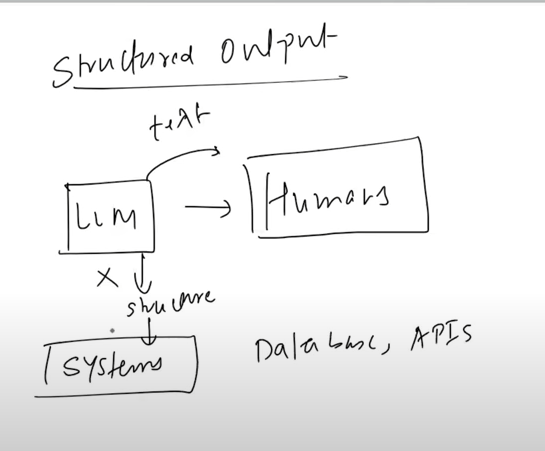 Structured Output
text
LLM
Humans
X
structure
Systems
Database, APIs